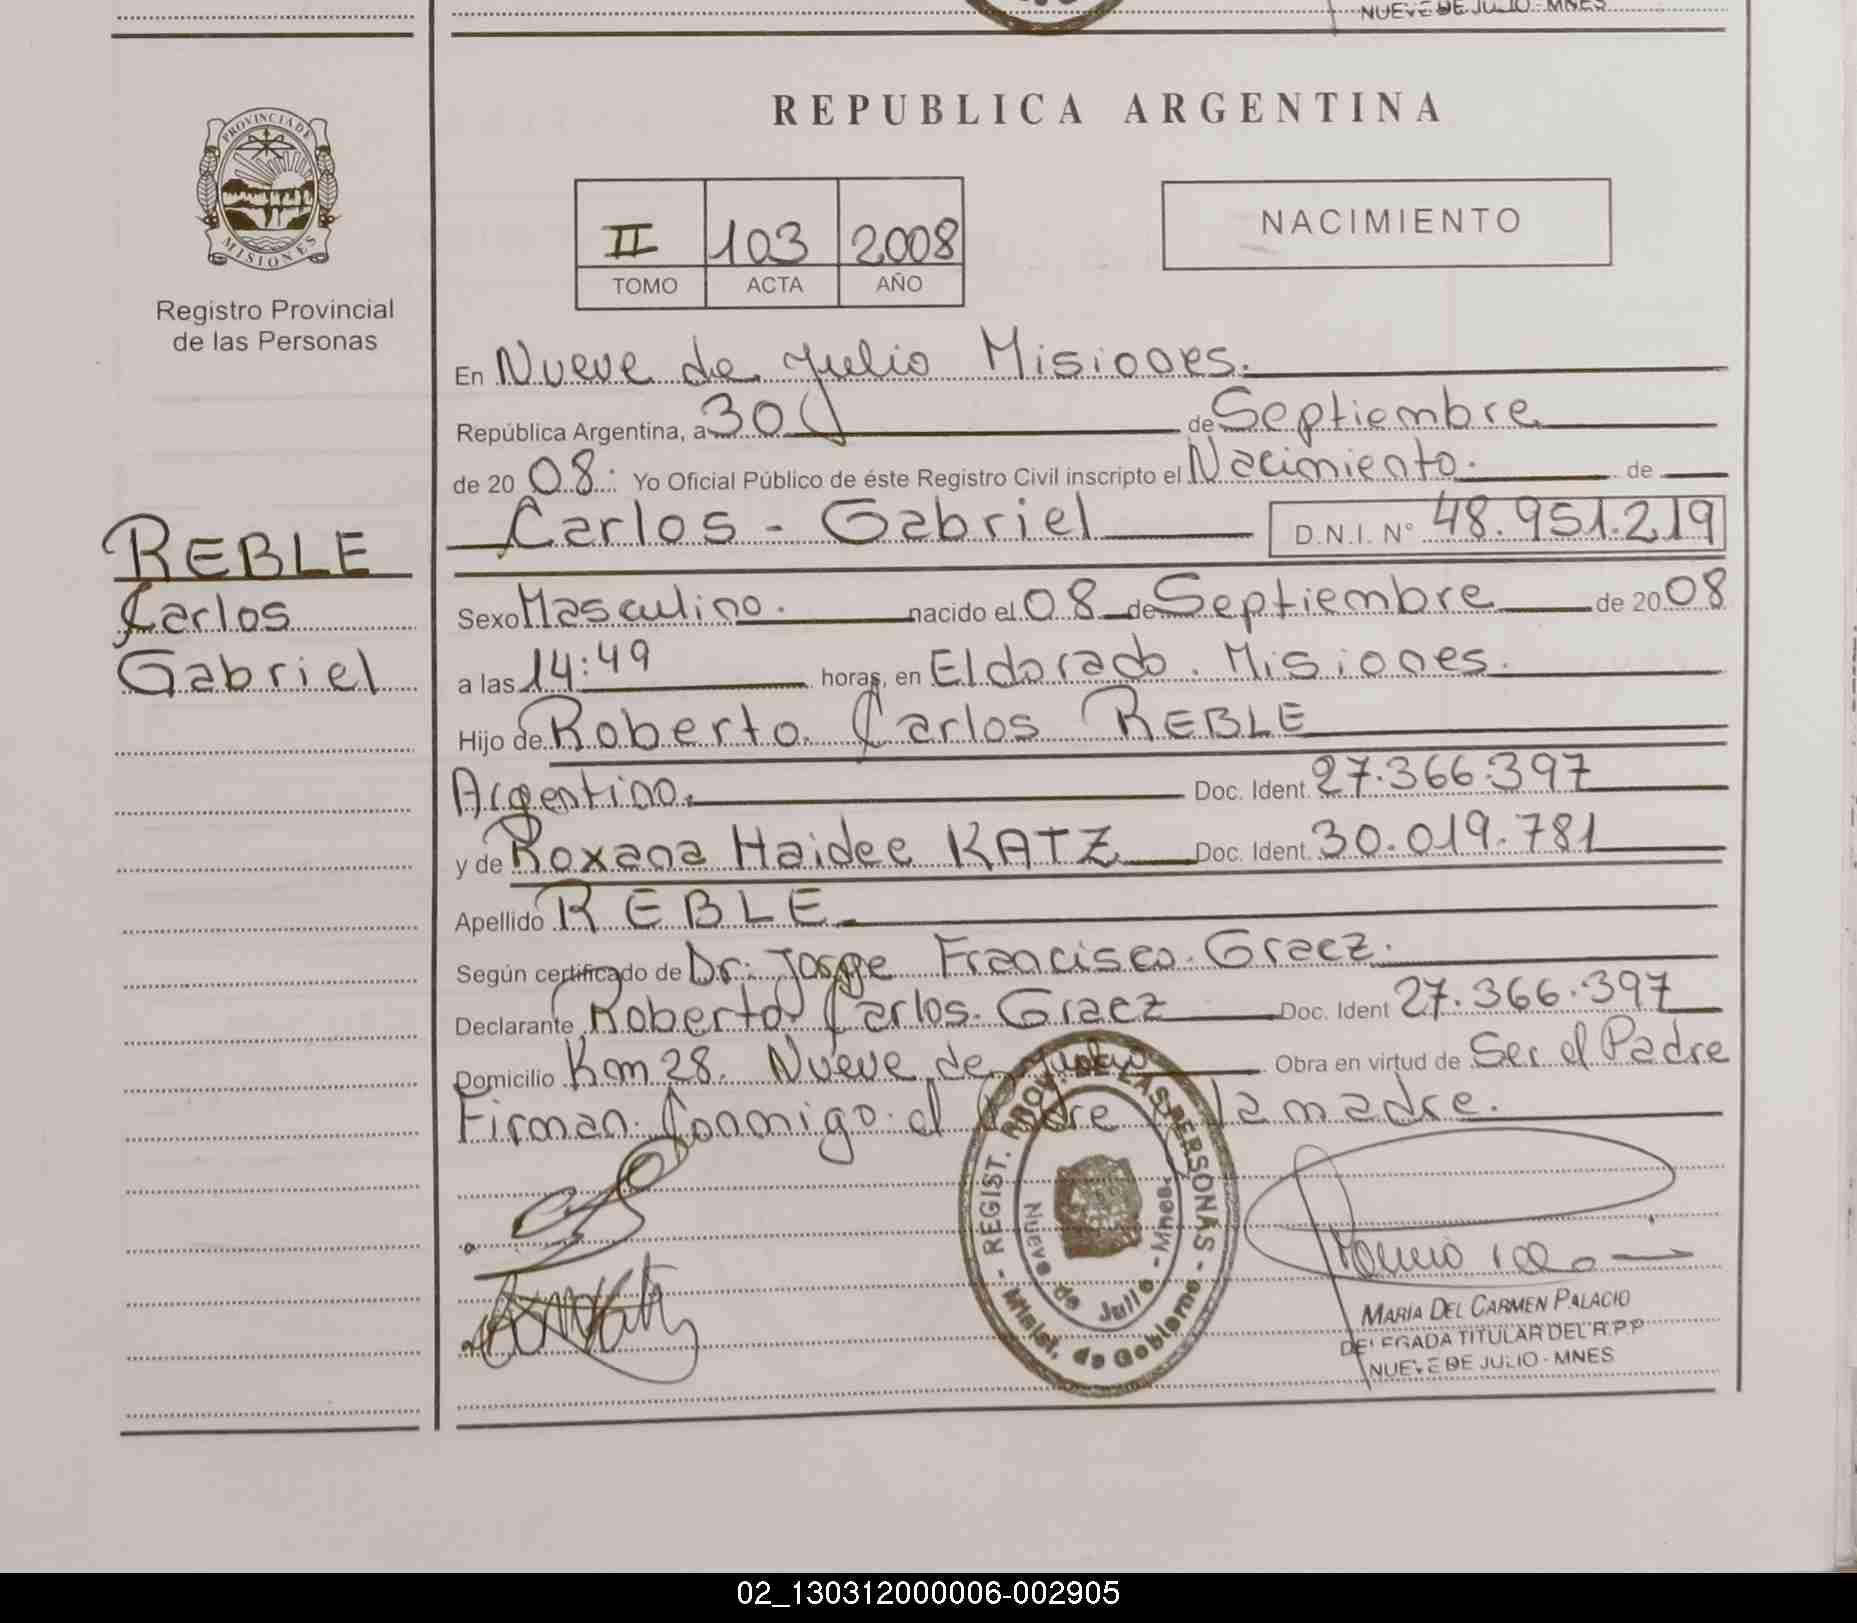 NUEVE DE JULIO - MNES
PROVINCIA DE
MISIONES
Registro Provincial
de las Personas
REBLE
Carlos
Gabriel
REPUBLICA ARGENTINA
II 103 2008
TOMO ACTA AÑO
NACIMIENTO
En Nueve de Julio Misiones.
República Argentina, a 30 de Septiembre
de 20 08: Yo Oficial Público de éste Registro Civil inscripto el Nacimiento. de
Carlos - Gabriel D.N.I. N° 48.951.219
Sexo Masculino. nacido el 08 de Septiembre de 20 08
a las 14:49 horas, en Eldorado. Misiones.
Hijo de Roberto Carlos REBLE
Argentino. Doc. Ident. 27.366.397
y de Roxana Haidee KATZ Doc. Ident. 30.019.781
Apellido REBLE.
Según certificado de Dr. Jorge Francisco Graez.
Declarante Roberto Carlos Graez Doc. Ident 27.366.397
Domicilio Km 28. Nueve de Julio Obra en virtud de Ser el Padre
Firman Conmigo el Padre y la madre.
- REGIST. PROV. DE LAS PERSONAS -
Minist. de Gobierno
Nueve de Julio - Mnes.
MARIA DEL CARMEN PALACIO
DELEGADA TITULAR DEL R.P.P
NUEVE DE JULIO - MNES
02_130312000006-002905